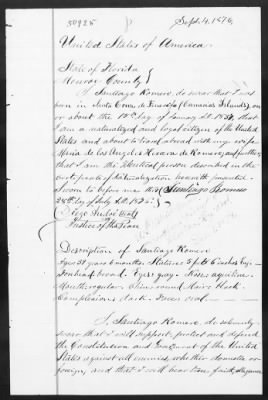 50925
Sept. 4, 1876
United States of America
State of Florida
Monroe County
I, Santiago Romero, do swear that I was
born in Santa Cruz de Teneriffe (Canarias Islands) on
or about the 12th day of January A.D. 1837, that
I am a naturalized and legal citizen of the United
States and about to travel abroad with my wife
Maria de los Angeles Rivera de Romero, and further
that I am the identical person described in the
certificate of Naturalization herewith presented.
Sworn to before me this Santiago Romero
28th day of July A.D. 1876.
Justice of the Peace
Description of Santiago Romero
Age: 39 years 6 months. Stature: 5 feet 6 inches Eng.
Forehead: broad. Eyes: gray. Nose: aquiline
Mouth: regular. Chin: round Hair: black
Complexion: dark. Face: oval
I, Santiago Romero, do solemnly
swear that I will support, protect and defend
the Constitution and Government of the United
States against all enemies, whether domestic or
foreign, and that I will bear true faith, allegiance